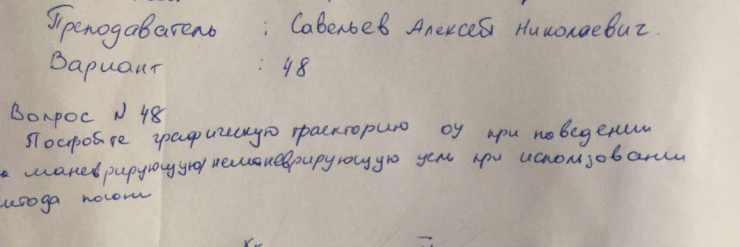 Преподаватель : Савельев Алексей Николаевич.
Вариант : 48
Вопрос N 48
Постройте графическую траекторию ОУ при наведении
на маневрирующую/неманеврирующую цель при использовании
метода погони